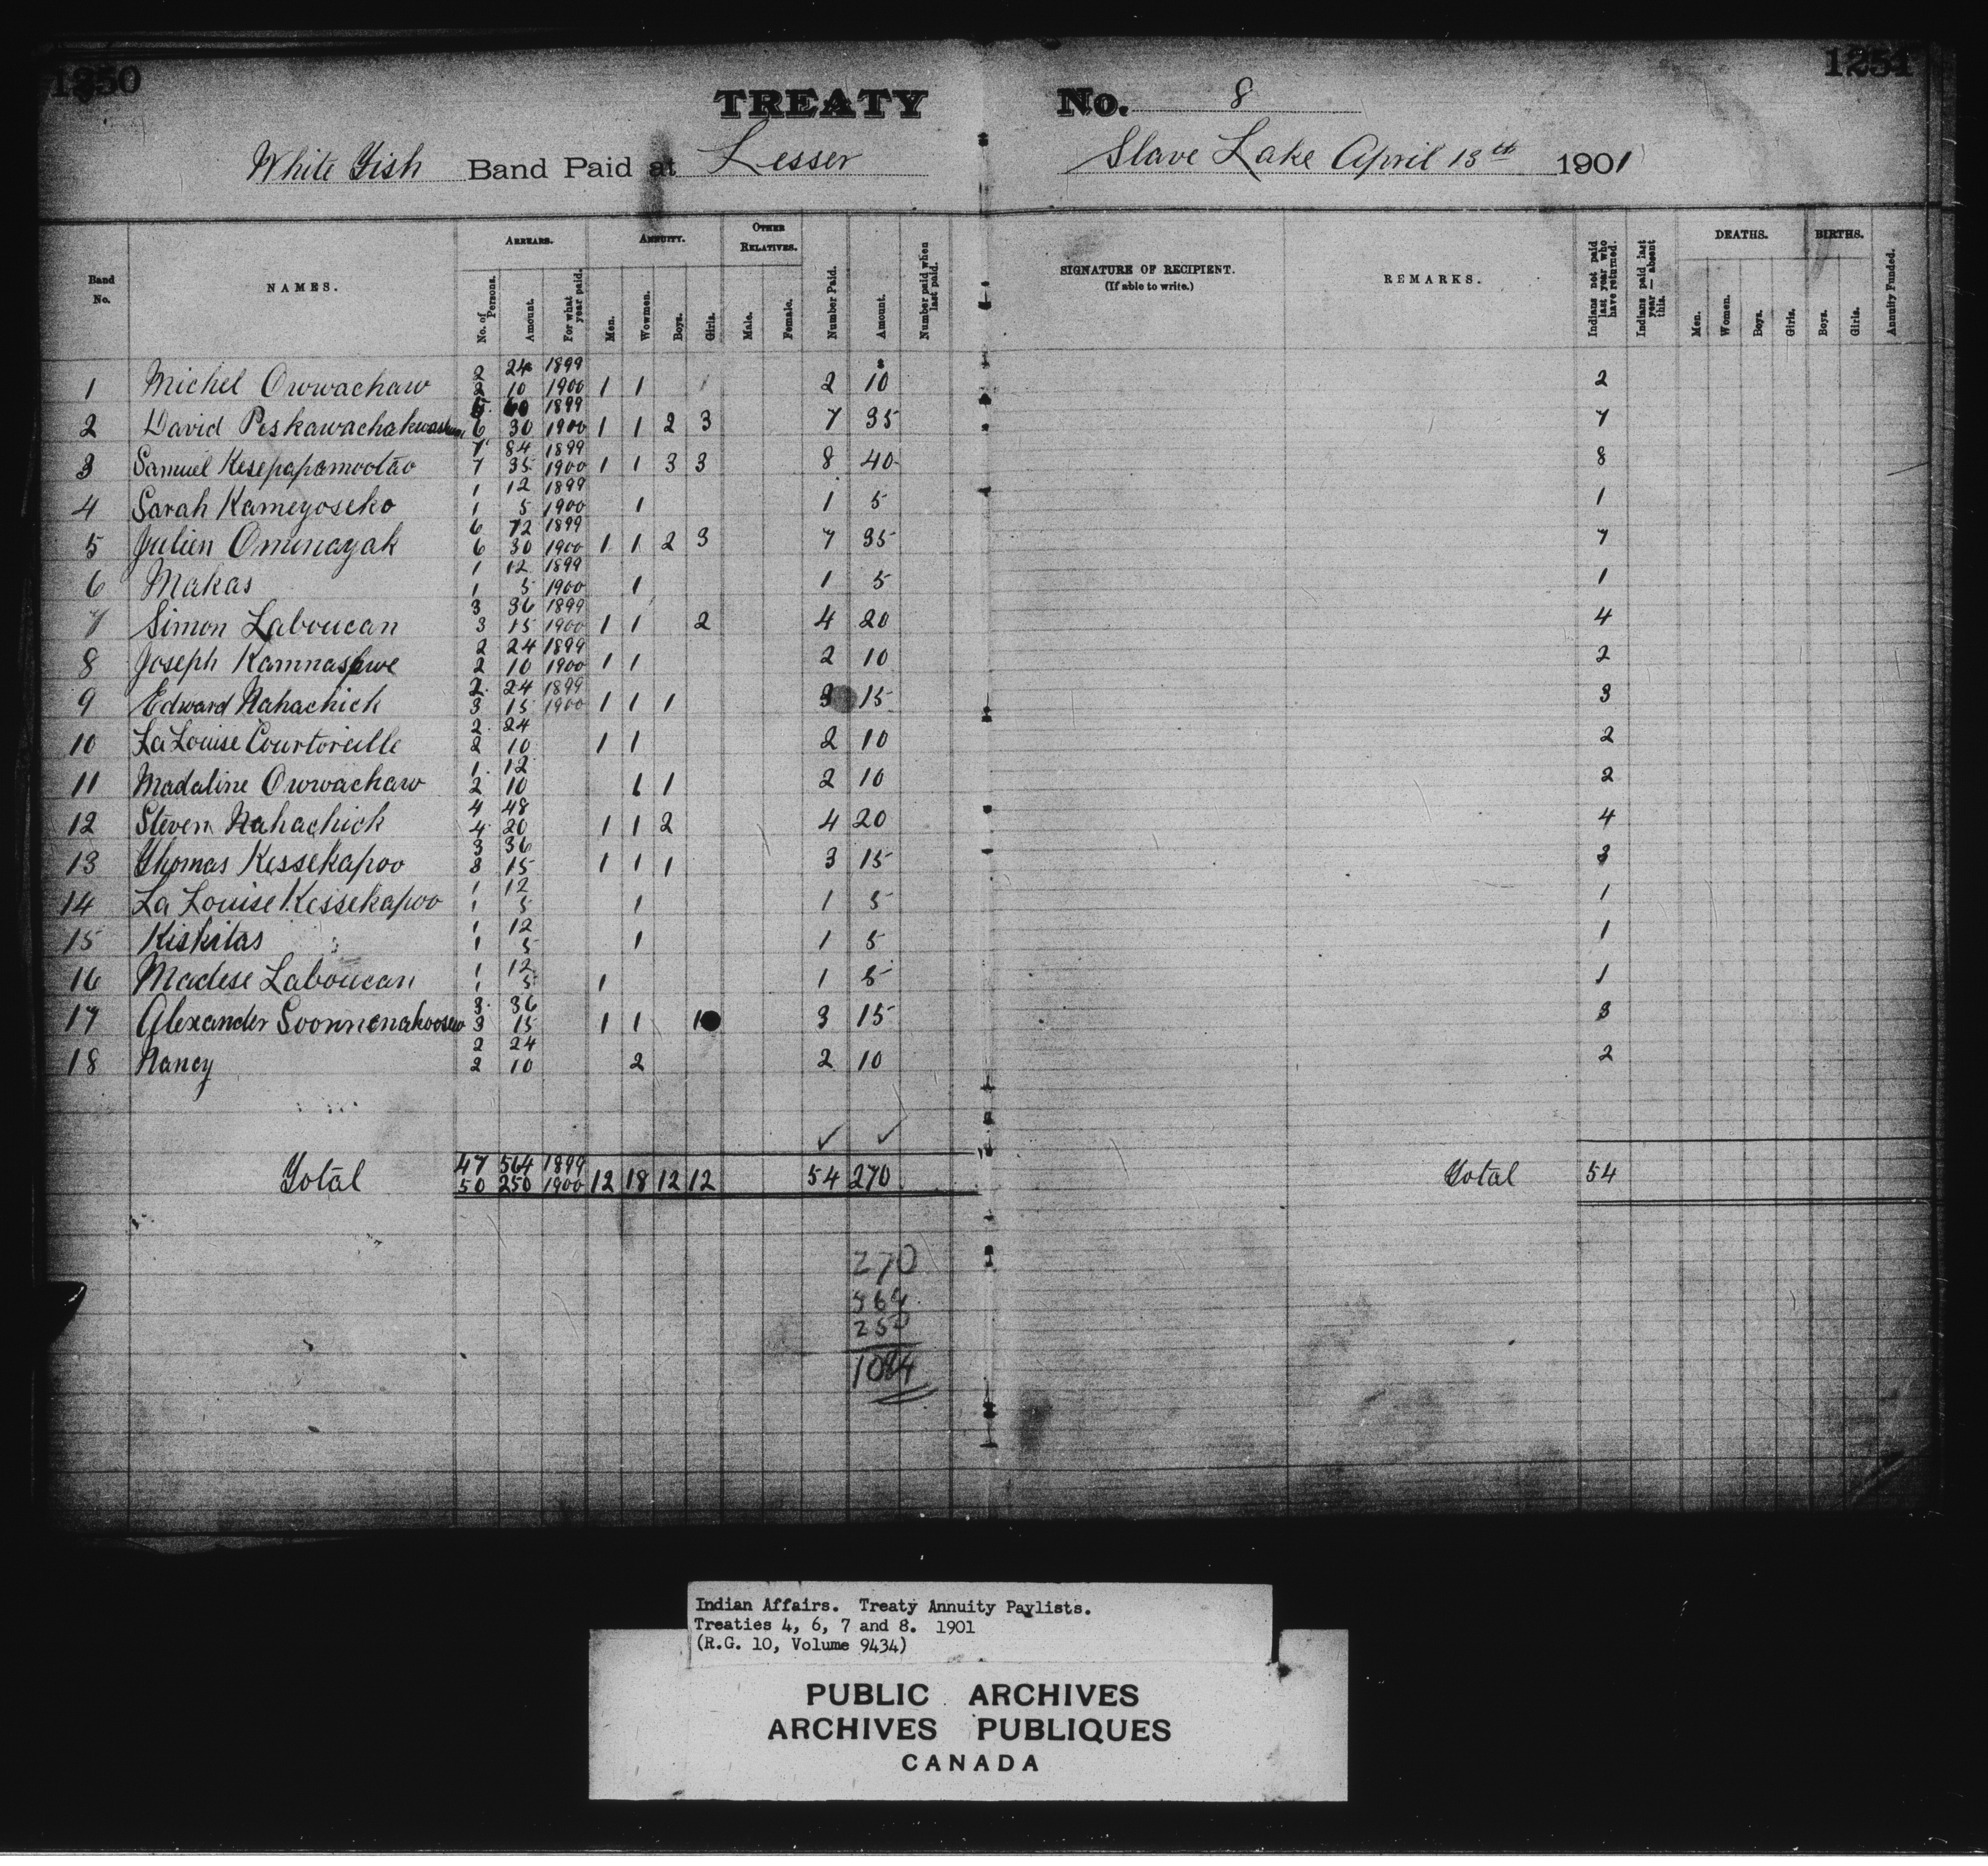 1250 1251
TREATY No. 8
White Fish Band Paid at Lesser Slave Lake April 13th 1901
Band No. NAMES. ARREARS. No. of Persons. Amount. For what year paid. ANNUITY. Men. Wowmen. Boys. Girls. OTHER RELATIVES. Male. Female. Number Paid. Amount. Number paid when last paid. SIGNATURE OF RECIPIENT. (If able to write.) REMARKS. Indians not paid last year who have returned. Indians paid last year — absent this. DEATHS. Men. Women. Boys. Girls. BIRTHS. Boys. Girls. Annuity Funded.
2 24 1899
1 Michel Owwachaw 2 10 1900 1 1 2 10 2
5 60 1899
2 David Peskawachakwashum 6 30 1900 1 1 2 3 7 35 7
7 84 1899
3 Samuel Kesepapamootao 7 35 1900 1 1 3 3 8 40 8
1 12 1899
4 Sarah Kameyoseko 1 5 1900 1 1 5 1
6 72 1899
5 Julien Ominayak 6 30 1900 1 1 2 3 7 35 7
1 12 1899
6 Makas 1 5 1900 1 1 5 1
3 36 1899
7 Simon Laboucan 3 15 1900 1 1 2 4 20 4
2 24 1899
8 Joseph Kamnashwe 2 10 1900 1 1 2 10 2
2 24 1899
9 Edward Nahachick 3 15 1900 1 1 1 3 15 3
2 24
10 La Louise Courtoreille 2 10 1 1 2 10 2
1 12
11 Madaline Owwachaw 2 10 1 1 2 10 2
4 48
12 Steven Nahachick 4 20 1 1 2 4 20 4
3 36
13 Thomas Kessekapoo 3 15 1 1 1 3 15 3
1 12
14 La Louise Kessekapoo 1 5 1 1 5 1
1 12
15 Kiskitas 1 5 1 1 5 1
1 12
16 Madese Laboucan 1 5 1 1 5 1
3 36
17 Alexander Soonnenahoosew 3 15 1 1 1 3 15 3
2 24
18 Nancy 2 10 2 2 10 2
47 564 1899
Total 50 250 1900 12 18 12 12 54 270 Total 54
270
564
250
1084
Indian Affairs. Treaty Annuity Paylists.
Treaties 4, 6, 7 and 8. 1901
(R.G. 10, Volume 9434)
PUBLIC ARCHIVES
ARCHIVES PUBLIQUES
CANADA